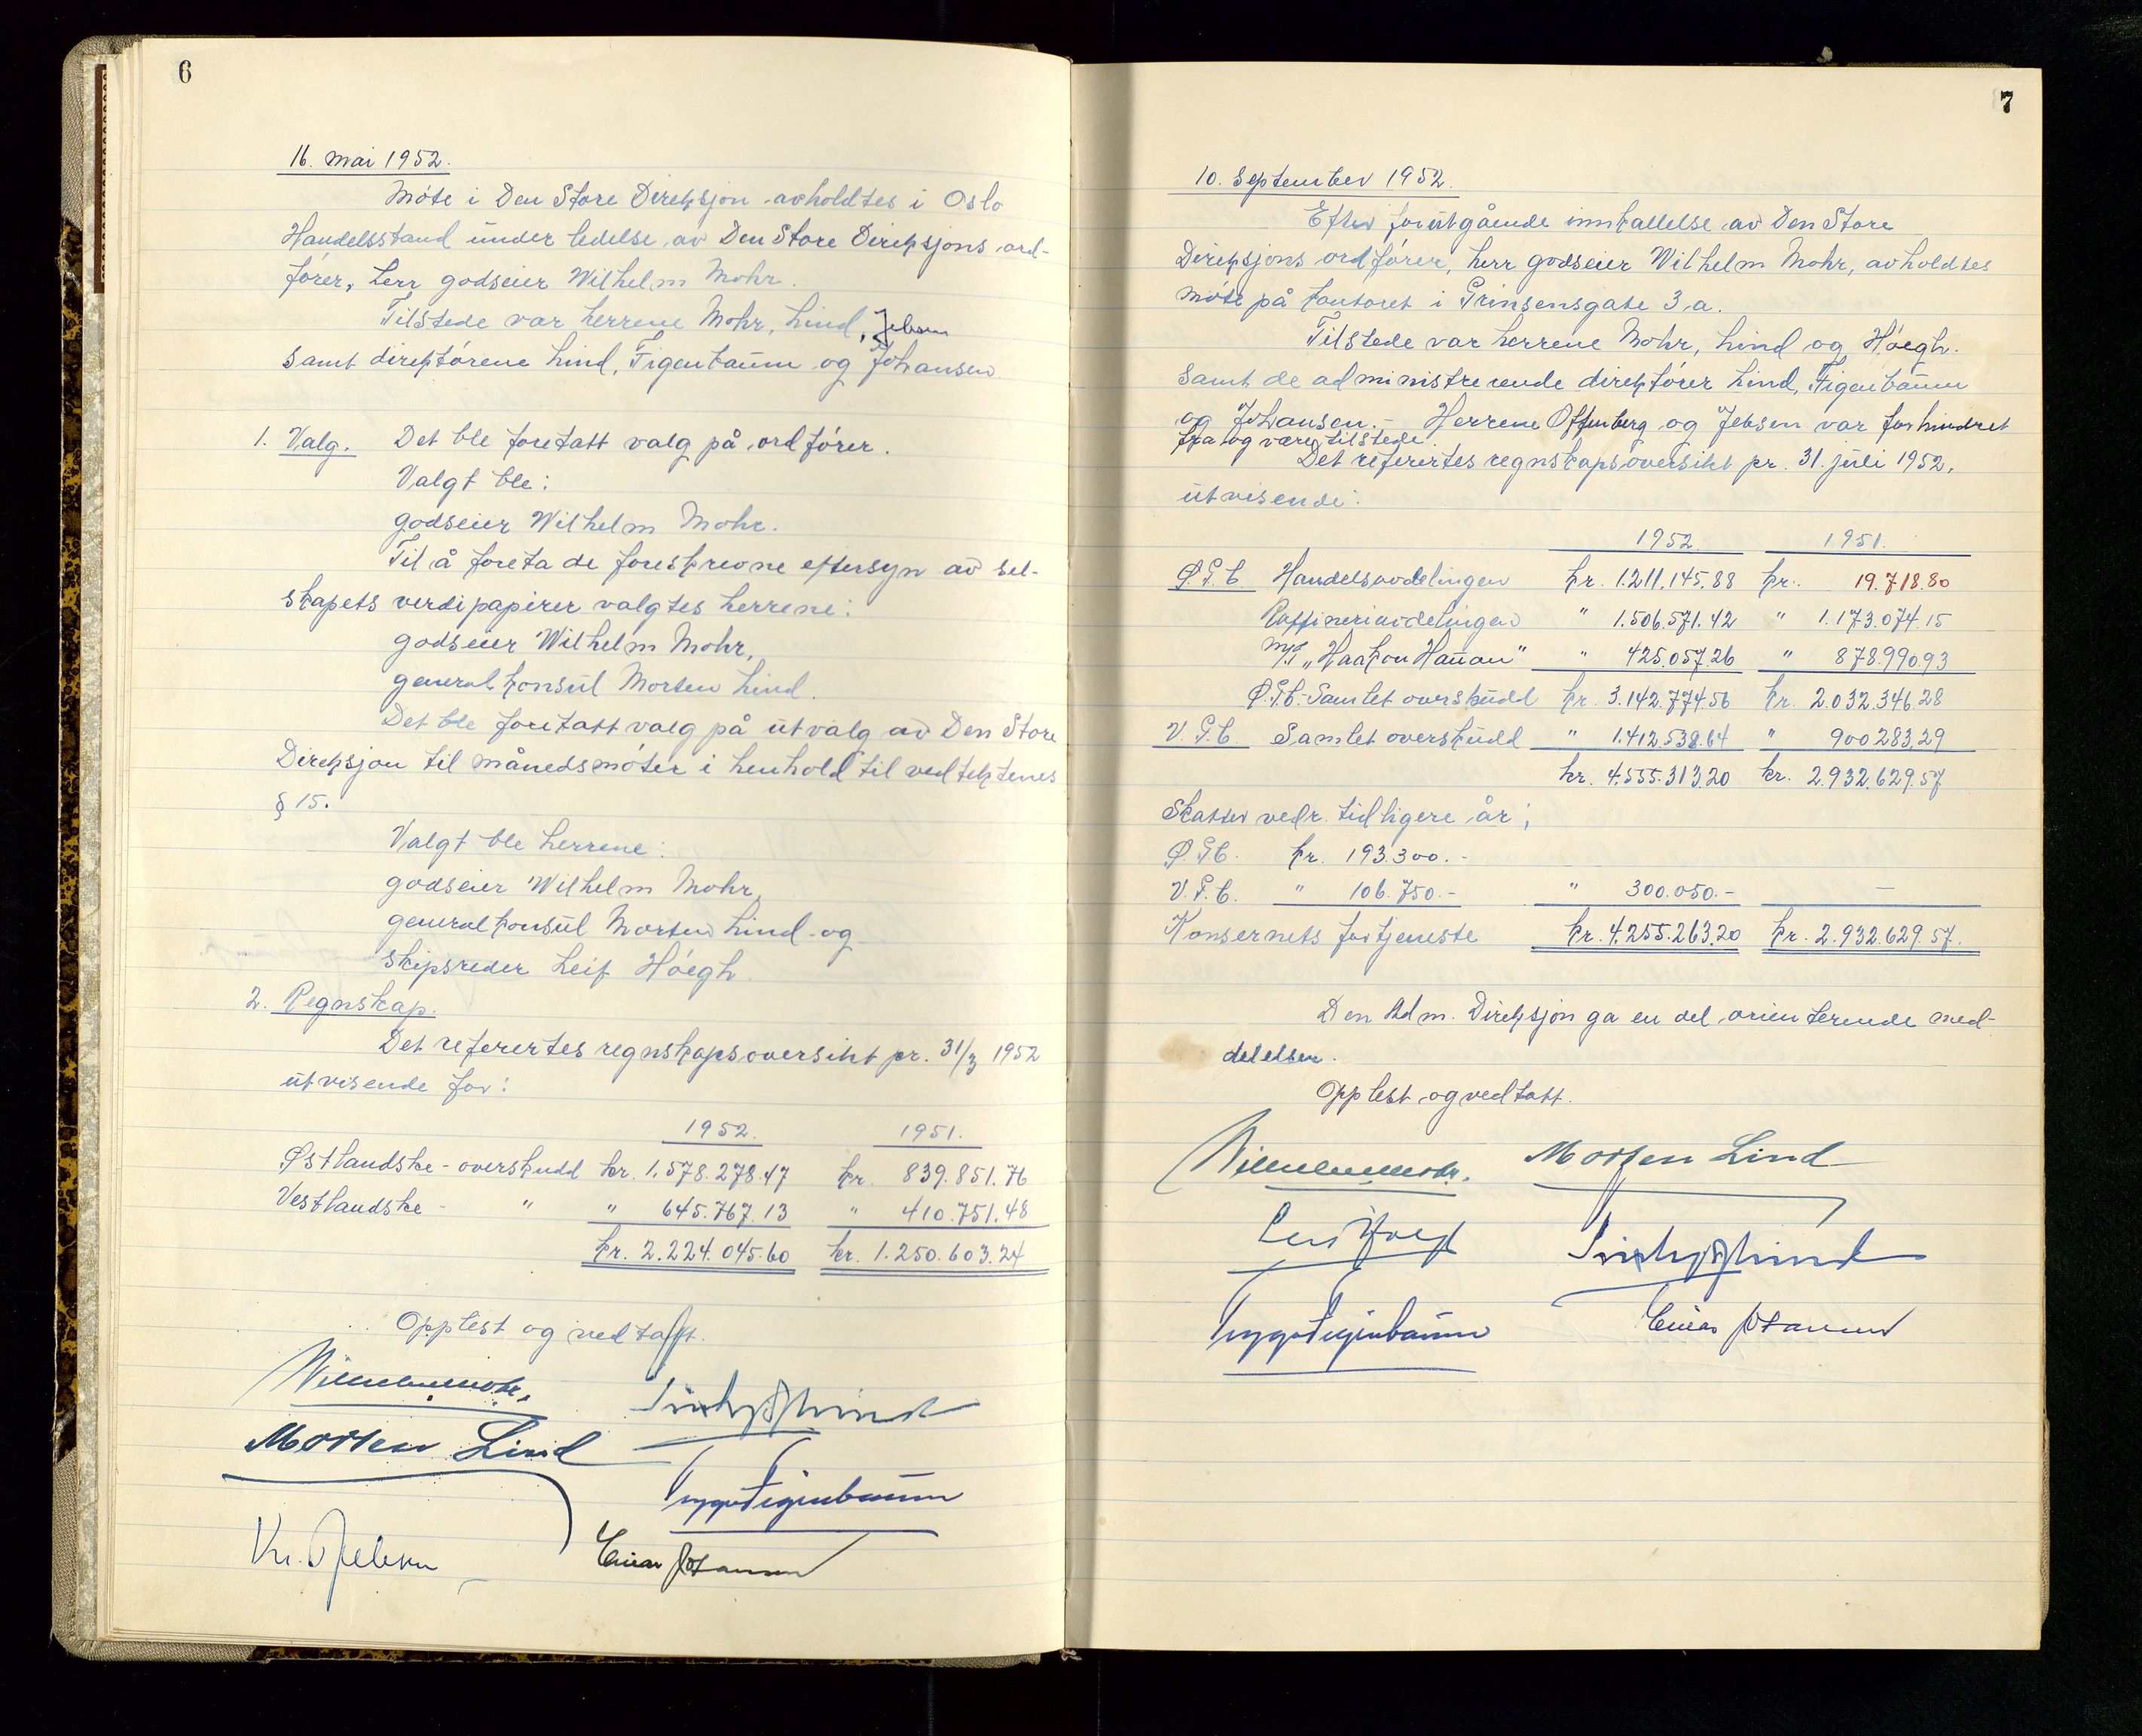 6
16. mai 1952.
Møte i Den Store Direksjon avholdtes i Oslo
Handelsstand under ledelse av Den Store Direksjons ord-
fører, herr godseier Wilhelm Mohr.
Tilstede var herrene Mohr, Lind, Jebsen
samt direktørene Lind, Figenbaum og Johansen
1. Valg. Det ble foretatt valg på ordfører.
Valgt ble:
godseier Wilhelm Mohr.
Til å foreta de foreskrevne eftersyn av sel-
skapets verdipapirer valgtes herrene:
godseier Wilhelm Mohr,
generalkonsul Morten Lind.
Det ble foretatt valg på utvalg av Den Store
Direksjon til månedsmøter i henhold til vedtektenes
§ 15.
Valgt ble herrene:
godseier Wilhelm Mohr,
generalkonsul Morten Lind og
skipsreder Leif Höegh.
2. Regnskap.
Det refertes regnskapsoversikt pr. 31/3 1952
utvisende for:
1952. 1951.
Østlandske - overskudd kr. 1.578.278.47 kr. 839.851.76
Vestlandske - " " 645.767.13 " 410.751.48
kr. 2.224.045.60 kr. 1.250.603.24
Opplest og vedtatt.
Wilhelm Mohr.
Morten Lind
Trygve Figenbaum
Kr. Jebsen
Einar Johansen
7
10. September 1952.
Efter forutgående innkallelse av Den Store
Direksjons ordfører, herr godseier Wilhelm Mohr, avholdtes
møte på kontoret i Prinsensgate 3.a.
Tilstede var herrene Mohr, Lind og Höegh.
samt de administrerende direktører Lind, Figenbaum
og Johansen. - Herrene Offenberg og Jebsen var forhindret
fra og være tilstede.
Det refertes regnskapsoversikt pr. 31. juli 1952,
utvisende:
1952. 1951.
Ø.P.C. Handelsavdelingen kr. 1.211.145.88 kr. 19.718.80
Raffineriavdelingen " 1.506.571.42 " 1.173.074.15
M/T "Haakon Hauan" " 425.057.26 " 878.990.93
Ø.P.C. Samlet overskudd kr. 3.142.774.56 kr. 2.032.346.28
V.P.C. Samlet overskudd " 1.412.538.64 " 900.283.29
kr. 4.555.313.20 kr. 2.932.629.57
Skatter vedr. tidligere år;
Ø.P.C. kr. 193.300.-
V.P.C. " 106.750.- " 300.050.- -
Konsernets fortjeneste kr. 4.255.263.20 kr. 2.932.629.57.
Den Adm. Direksjon ga en del orienterende med-
delelser.
Opplest og vedtatt.
Wilhelm Mohr. Morten Lind
Leif Höegh
Trygve Figenbaum Einar Johansen